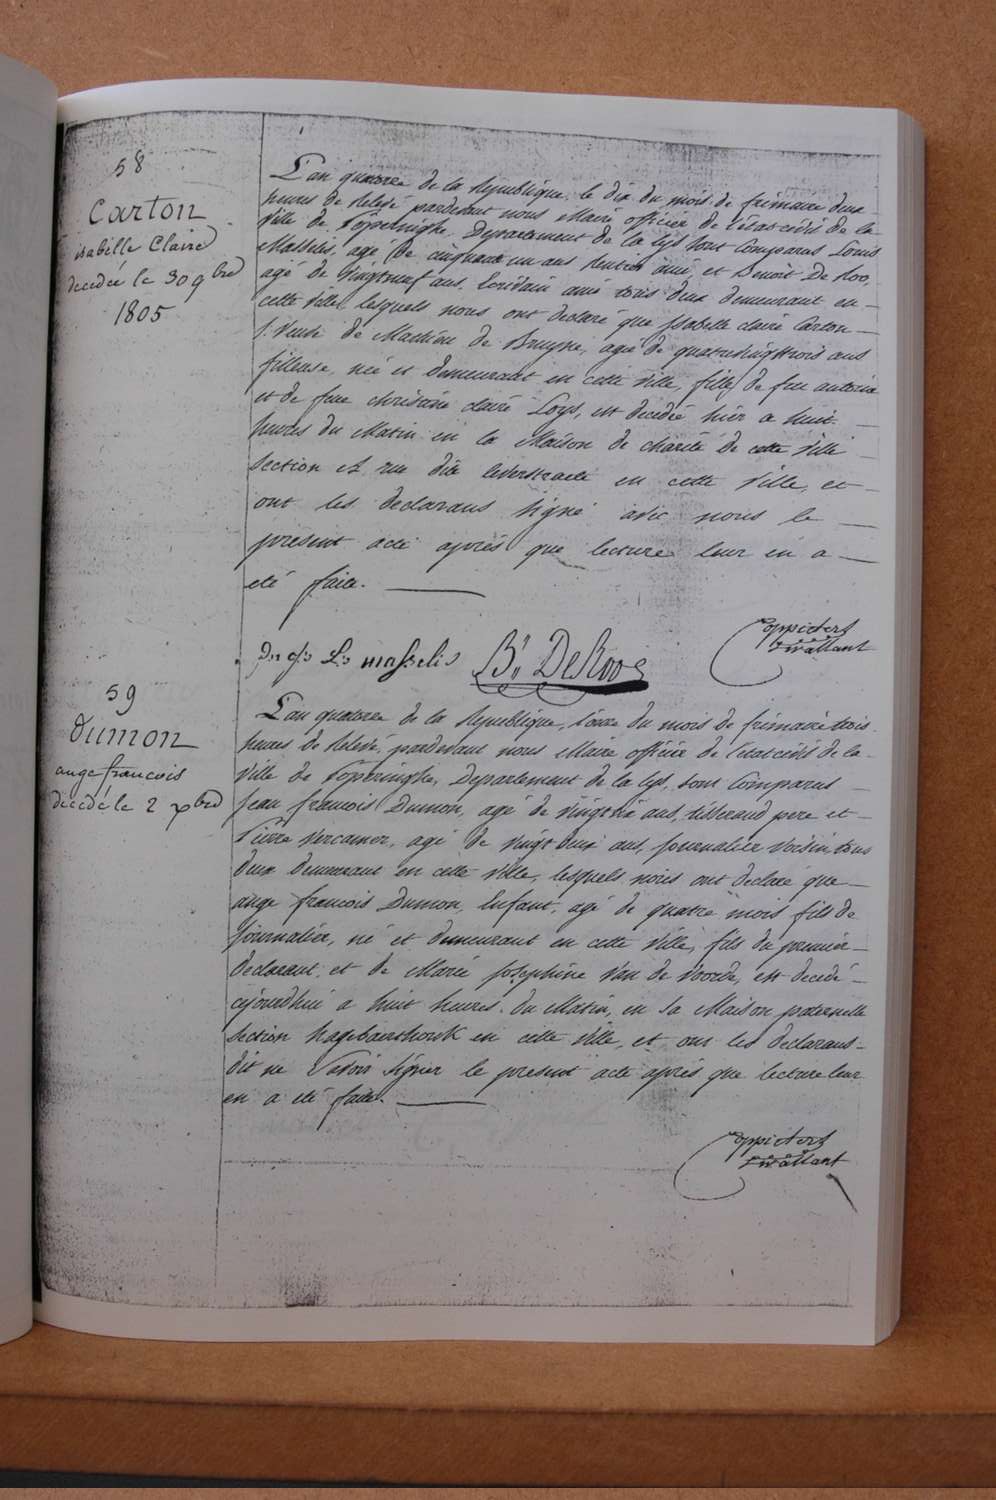 58
Carton
isabelle Claire
decedée le 30 9bre
1805
L'an quatorze de la Republique le dix du mois de frimaire deux
heures de Relevé pardevant nous Maire officier de l'état civil de la
ville de Poperinghe, Departement de la Lys sont Comparus Louis
Masselis, agé de cinquante un ans Rentier ami, et Benoit De Roo,
agé de Vingtneuf ans, Ecrivain ami tous deux demeurant en
cette ville, lesquels nous ont declaré que Isabelle claire Carton
Veuve de Mathieu de Bruyne, agée de quatrevingttrois ans
fileuse, née et demeurant en cette ville, fille de feu antoine
et de feue christine claire Loys, est decedée hier a huit
heures du Matin en la Maison de charité de cette ville
Section A rue dite en cette Ville, et
ont les declarans signé avec nous le
present acte après que lecture leur en a
eté faite.
Ls masselis Bt DeRoo
Coppieters
Twallant
59
Dumon
ange francois
decedé le 2 xbre
L'an quatorze de la Republique, l'onze du mois de frimaire trois
heures de Relevé, pardevant nous Maire officier de l'état civil de la
Ville de Poperinghe, Departement de la Lys, sont Comparus
Jean francois Dumon, agé de vingt ans, tisserand pere et
Pierre Vercamer, agé de vingt deux ans, Journalier Voisin tous
deux demeurant en cette Ville, lesquels nous ont declaré que
ange francois Dumon, Enfant, agé de quatre mois fils de
Journalier, né et demeurant en cette Ville, fils du premier
declarant, et de Marie Josephine Van de Voorde, est decedé
cejourdhui a huit heures du Matin, en sa Maison paternelle
Section hagebaerthouk en cette Ville, et ont les declarans
dit ne Savoir Signer le present acte après que lecture leur
en a eté faite.
Coppieters
Twallant